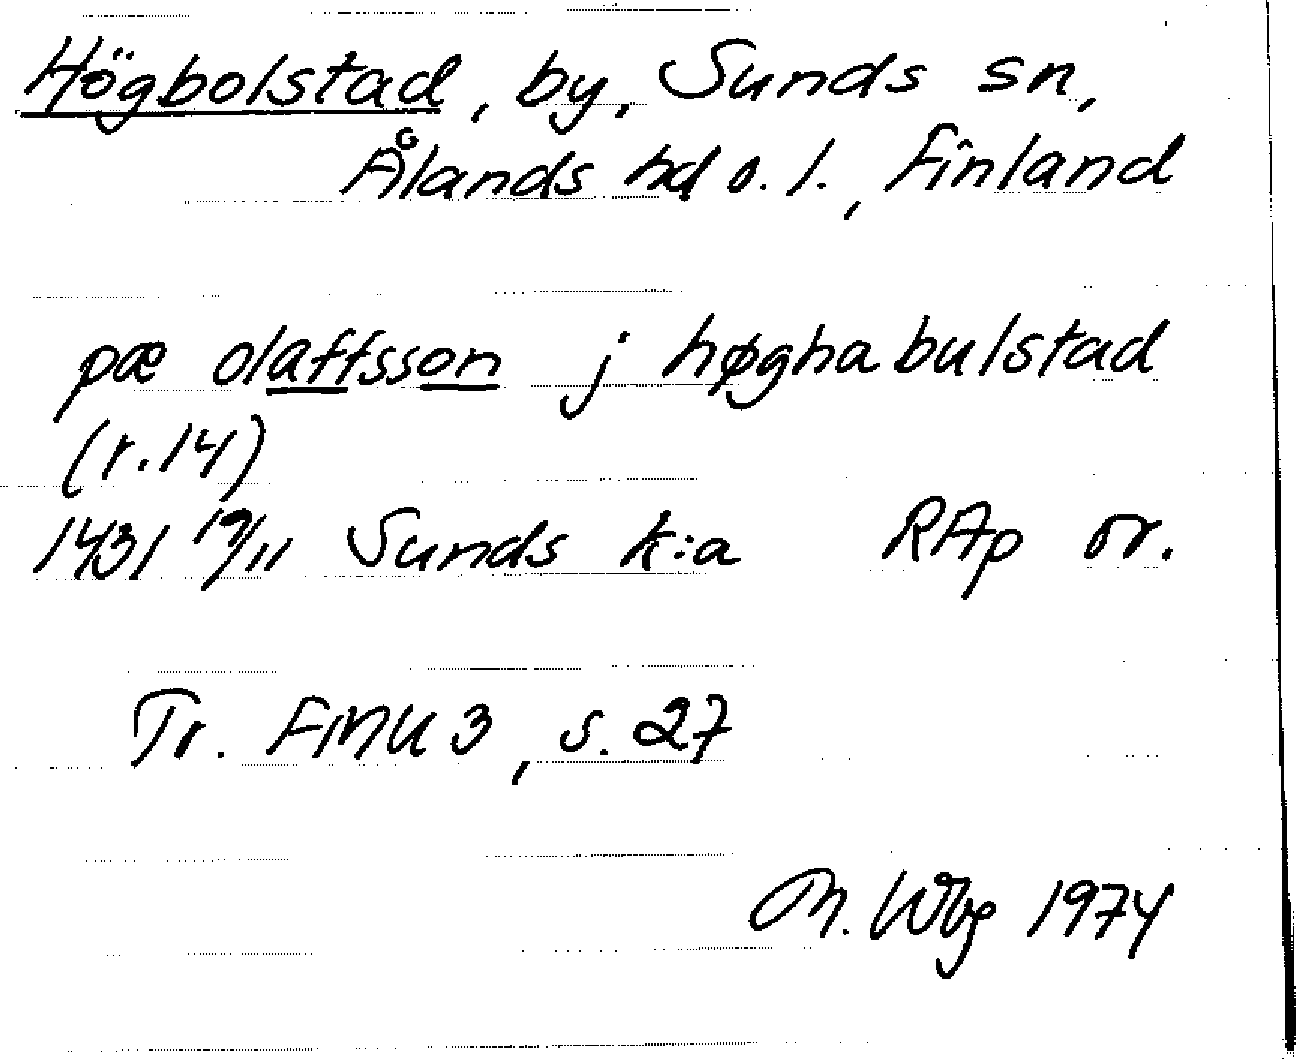 Högbolstad, by, Sunds sn,
Ålands hd o. l., Finland
pæ olaffsson j høgha bulstad
(r.14)
1431 19/11 Sunds k:a RAp or.
Tr. FMU 3, s. 27
M. Wbg 1974